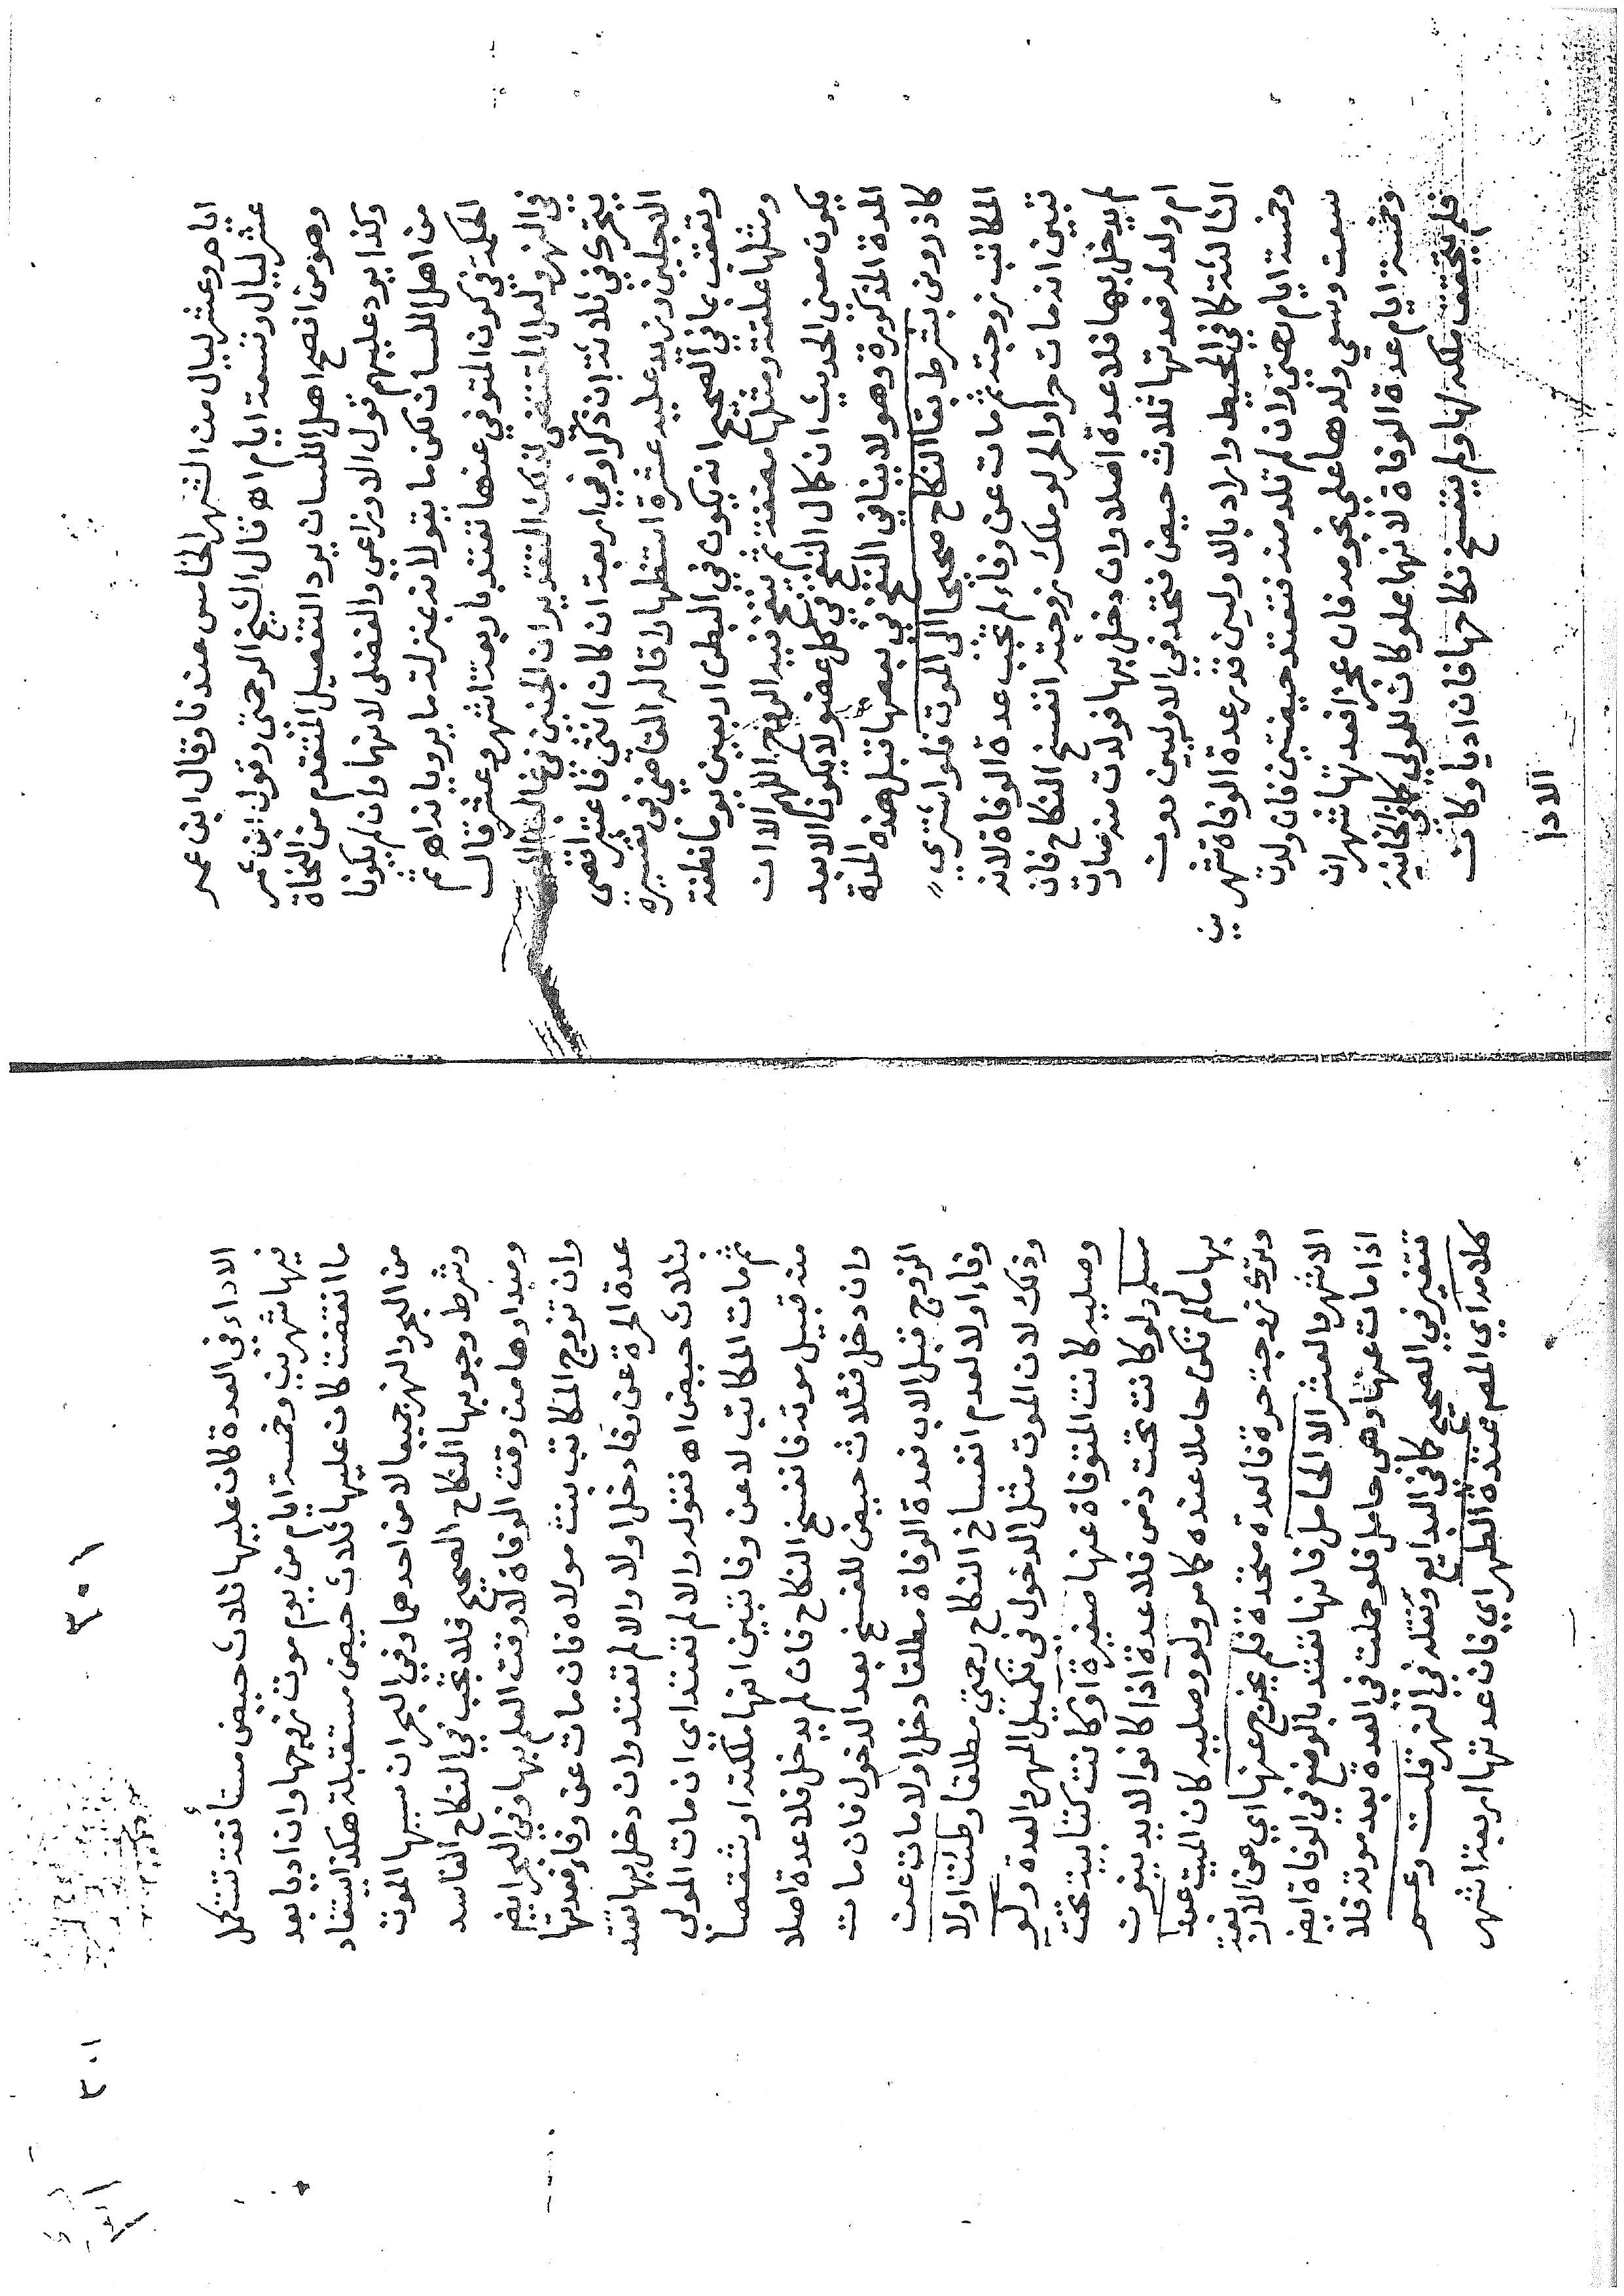 ايام وعشر ليال من الشهر الخامس عندنا وقال ابن عمر
عشر ليال وتسعة ايام اه قال الشيخ الرحمتي وقول ابن عمر
وهو من افصح اهل اللسان يرد التفصيل المتقدم من النحاة
وكذا يرد عليهم قول الاوزاعي والفضلي لانهما وان لم يكونا
من اهل اللسان لكن ما يقولانه بمنزلة ما يرويانه اه ثم
الحكمة في كون المتوفي عنها تعتد باربعة اشهر وعشر قال
في النهر ولعل المقتضى لذلك التقدير ان الجنين في غالب الامر
يتحرك في ثلاثة ان ذكرا وفي اربعة ان كان انثى فاعتبر اقصى
الاجلين وزيد عليه عشرة استظهارا قاله القاضي في تفسيره
وتعقب بما في الصحيح انه يكون في البطن اربعين يوما نطفة
ومثلها علقة ومثلها مضغة ثم ينفخ فيه الروح اللهم الا ان
يكون معنى الحديث ان كمال النفخ في كل عضو لا يكون الا بعد
المدة المذكورة وهو لا ينافي النفخ في بعضها قبل هذه المدة
كاذرون بشرط بقا النكاح صحيحا الى الموت فلو اشترى
المكاتب زوجته ثم مات عن وفاء لم تجب عدة الوفاة لانه
تبين انه مات حرا والحر لو ملك زوجته انفسخ النكاح فان
لم يدخل بها فلا عدة اصلا وان دخل بها فولدت منه صارت
ام ولد له فعدتها ثلاث حيض فتحد في الاوليين دون
الثالثة كما في المحيط واراد بالاوليين قدر عدة الوفاة شهرين
وخمسة ايام رحمتي وان لم تلد منه فتعتد حيضتين فان ولدت
سعت وسعي ولدها على نجومه فان عجزا فعدتها شهران
وخمسة ايام عدة الوفاة لانهما مملوكان للمولي كما في الخانية
فلم يتحقق ملكه لها ولم ينفسخ نكاحها فان اديا وكان
الادا
٣٠١
٣٠١
الاداء في العدة كان عليها ثلاث حيض مستأنفة تستكمل
فيها شهرين وخمسة ايام من يوم موت زوجها وان اديا بعد
ما انقضت كان عليها ثلاث حيض مستقبلة هكذا يستفاد
من البحر والنهر جميعا لا من احدهما وفي البحر ان سببها الموت
وشرط وجوبها النكاح الصحيح فلا تجب في النكاح الفاسد
ومبداوها من وقت الوفاة لا وقت العلم بها وفي البحر ايضا
وان تزوج المكاتب بنت مولاه فان مات عن وفاء فعدتها
عدة الحرة عن وفاء دخل اولا والا لم تعتد وان دخل بها تعتد
بثلاث حيض اه فقوله والا لم تعتد اى ان مات المولى
ثم مات المكاتب لا عن وفا تبين انها ملكته او شقصا
منه قبيل موته فانفسخ النكاح فان لم يدخل فلا عدة اصلا
وان دخل فثلاث حيض للفسخ بعد الدخول فان مات
الزوج قبل الاب فعدة الوفاة مطلقا دخل اولا مات عن
وفاء اولا لعدم انفساخ النكاح رحمتي مطلقا وطئت اولا
وذلك لان الموت مثل الدخول في تكميل المهر والعدة ولو
وصليه كانت المتوفاة عنها صغيرة او كانت كتابية تحت
مسلم ولو كانت تحت ذمي فلا عدة اذا كانوا لا يدينون
بها ما لم تكن حاملا عنده كما مر ولو وصليه كان الميت عبدا
وترك زوجة حرة فالعدة متحدة فلم يخرج عنها اي عن الاربعة
الاشهر والعشر الا الحامل فانها تعتد بالوضع في الوفاة ايضا
اذا مات عنها وهى حامل فلو حملت في العدة بعد موته فلا
تتغير في الصحيح كما في البدايع ونقله في النهر قلت وعمـ
كلامه اي المص ممتدة الطهر اي فان عدتها اربعة اشهر